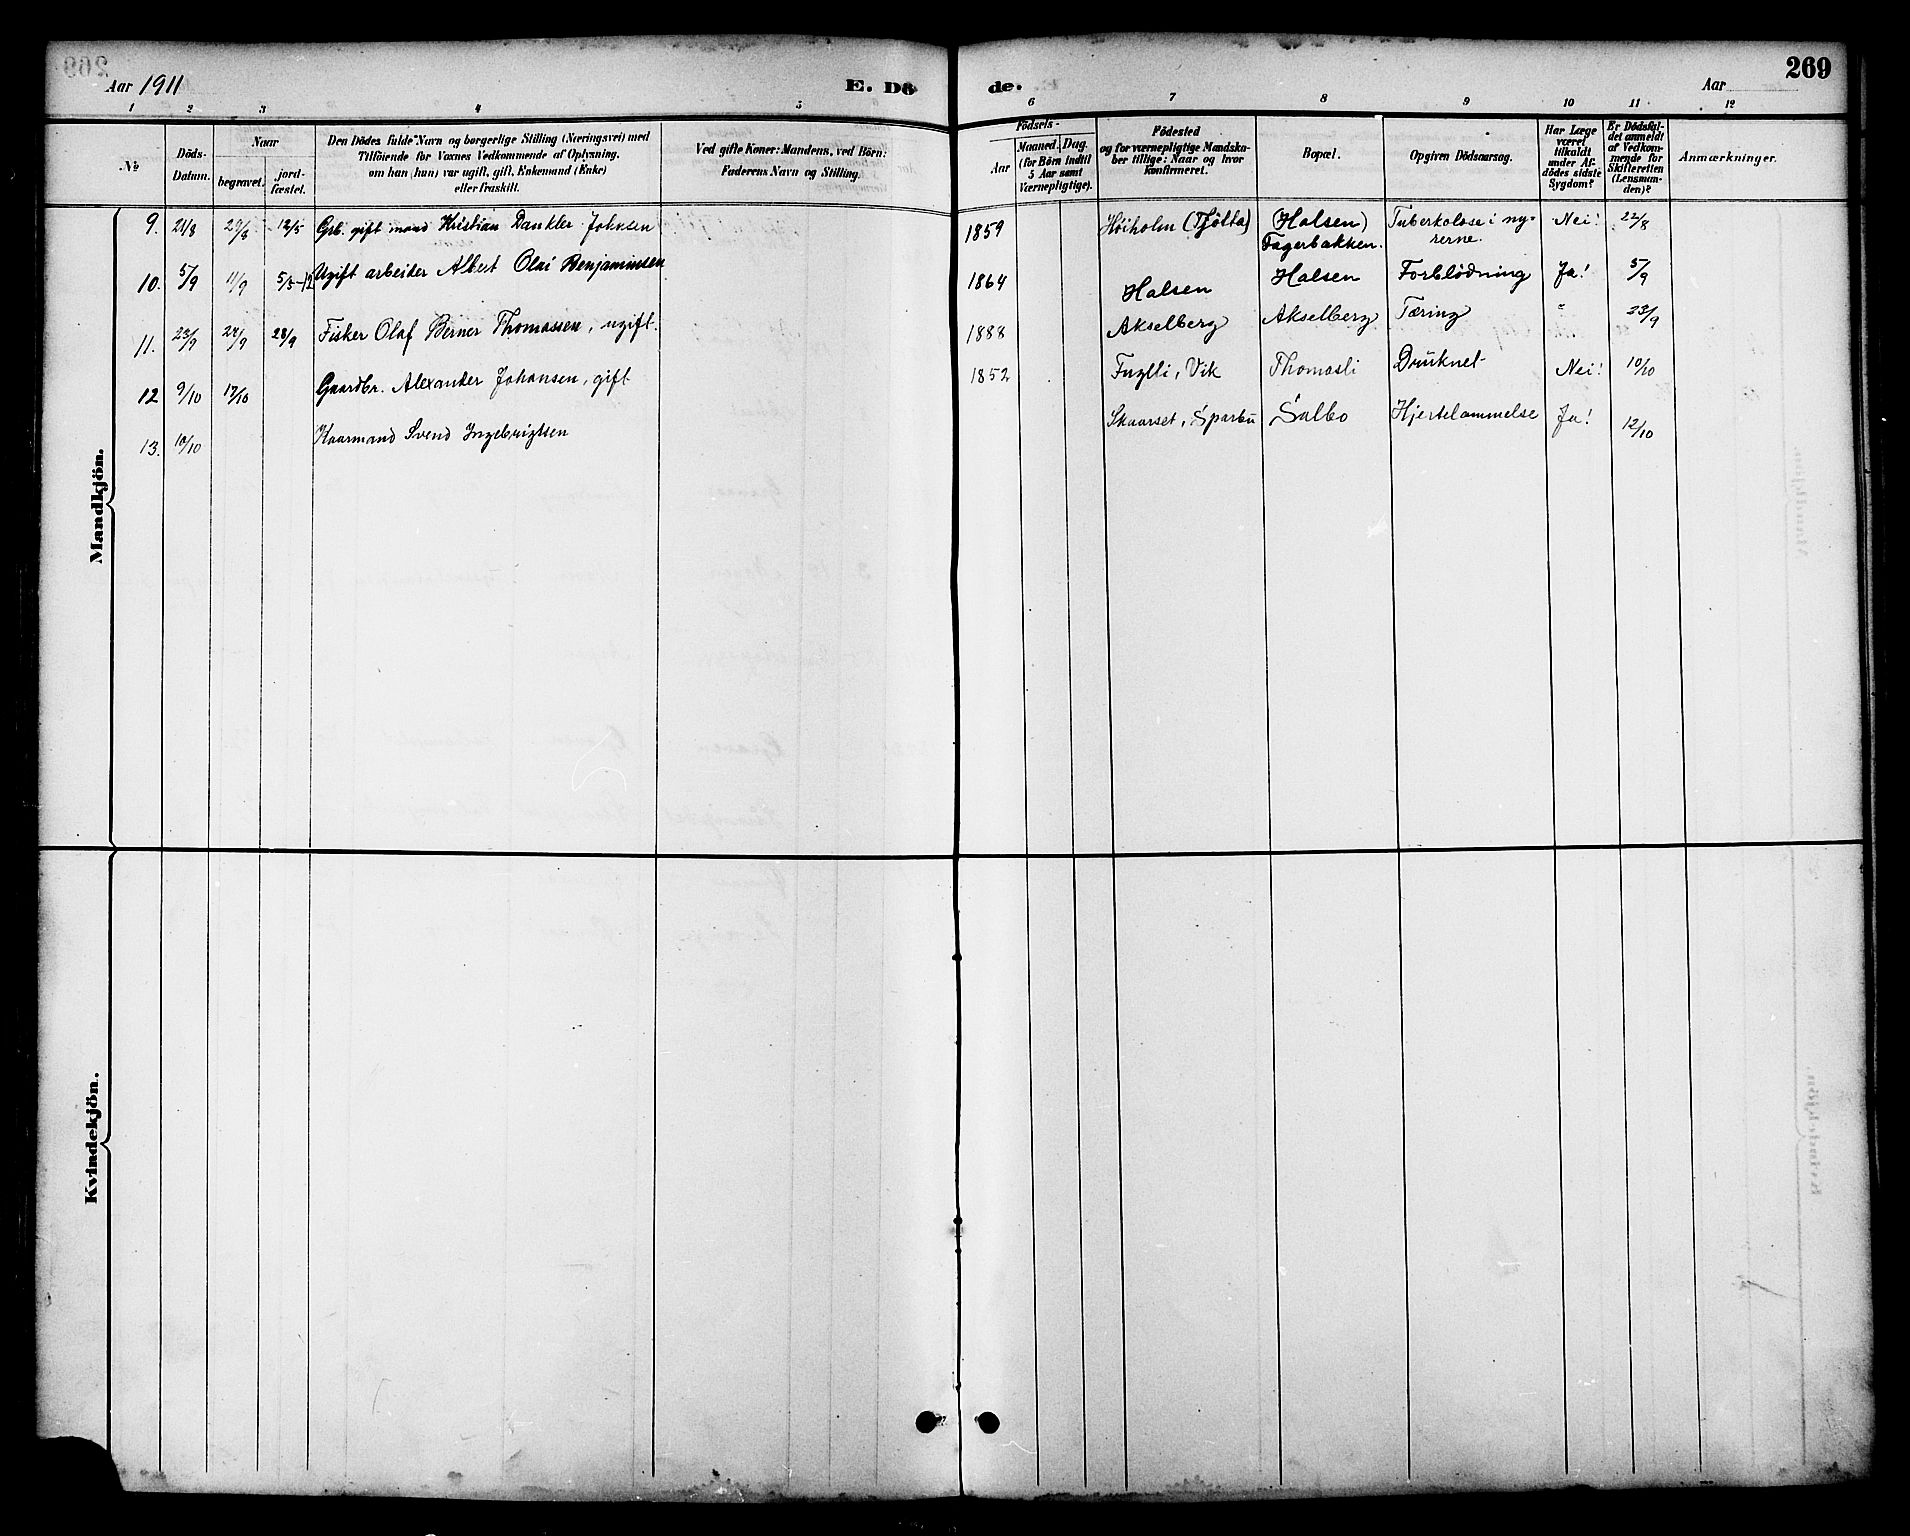 Aar 1911
E. Dö
de.
Aar
269
1 2 3 4 5 6 7 8 9 10 11 12
No
Döds-
Datum.
Naar
begravet.
jord-
fæstet.
Den Dödes fulde Navn og borgerlige Stilling (Næringsvei) med
Tilföiende for Voxnes Vedkommende af Oplysning,
om han (hun) var ugift, gift, Enkemand (Enke)
eller fraskilt.
Ved gifte Koner: Mandens, ved Börn:
Faderens Navn og Stilling.
Födsels-
Aar
Maaned.
Dag.
(for Börn indtil
5 Aar samt
Værnepligtige).
Födested
og for værnepligtige Mandska-
ber tillige: Naar og hvor
konfirmeret.
Bopæl.
Opgiven Dödsaarsag.
Har Læge
været
tilkaldt
under Af-
dödes sidste
Sygdom?
Er Dödsfal-
det anmeldt
af Vedkom-
mende for
Skifteretten
(Lensman-
den)?
Anmærkninger.
Mandkjön.
9. 21/8 29/8 12/5 Grb. gift mand Kristian Dankler Johnsen 1859 Høiholm (Tjötta) (Halsen) Fagerbakken. Tuberkolose i ny-
rerne. Nei! 22/8
10. 5/9 11/9 5/5-12 Ugift arbeider Albert Olai Benjaminsen 1864 Halsen Halsen Forblödning Ja! 5/9
11. 23/9 28/9 28/9 Fisker Olaf Berner Thomassen, ugift. 1888 Akselberg Akselberg Tæring " 23/9
12 9/10 17/10 Gaardbr. Alexander Johansen, gift 1852 Fuglli, Vik Thomasli Druknet Nei! 10/10
13. 10/10 Kaarmand Svend Ingebrigtsen Skaarset, Sparbu Salbo Hjertelammelse Ja! 12/10
Kvindekjön.